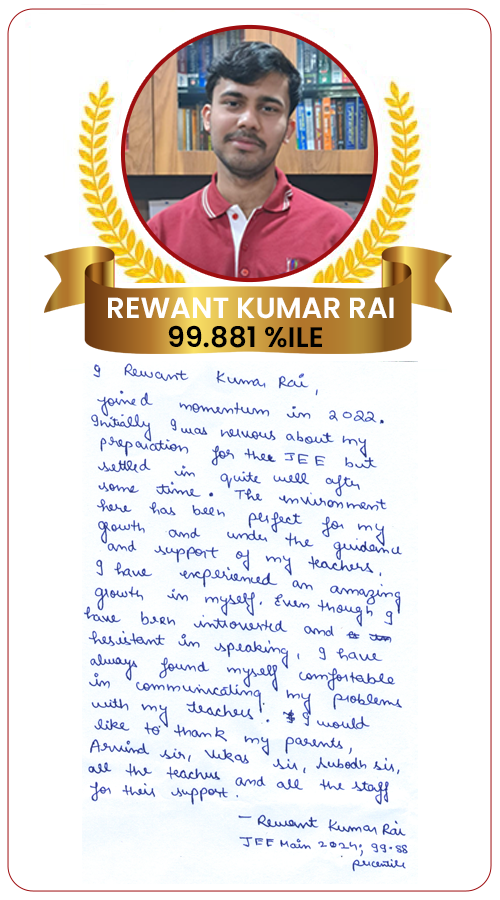 REWANT KUMAR RAI
99.881 %ILE
I Rewant Kumar Rai,
joined momentum in 2022.
Initially I was nervous about my
preparation for the JEE but
settled in quite well after
some time. The environment
here has been perfect for my
growth and under the guidance
and support of my teachers,
I have experienced an amazing
growth in myself. Even though I
have been introverted and
hesistant in speaking, I have
always found myself comfortable
in communicating my problems
with my teachers. I would
like to thank my parents,
Arvind sir, Vikas sir, Subodh sir,
all the teachers and all the staff
for their support.
– Rewant Kumar Rai
JEE Main 2024; 99.88
percentile